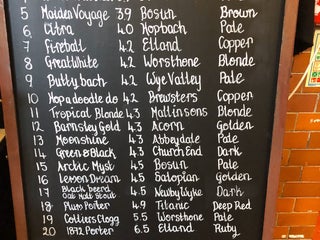 5 Maiden Voyage 3.9 Bosun Brown
6 Citra 4.0 Hopbach Pale
7 Fireball 4.2 Elland Copper
8 Great White 4.2 Worsthorne Blonde
9 Butty bach 4.2 Wye Valley Pale
10 Hopadoodle do 4.2 Brewsters Copper
11 Tropical Blonde 4.3 Mallinsons Blonde
12 Barnsley Gold 4.3 Acorn Golden
13 Moonshine 4.3 Abbeydale Pale
14 Green & Black 4.3 Church End Dark
15 Arctic Myst 4.5 Bosun Pale
16 Lemon Dream 4.5 Salopian Golden
17 Black beerd Oat Malt Stout 4.5 Newby Wyke Dark
18 Pluto Porter 4.9 Titanic Deep Red
19 Colliers Clogg 5.5 Worsthorne Pale
20 1872 Porter 6.5 Elland Ruby